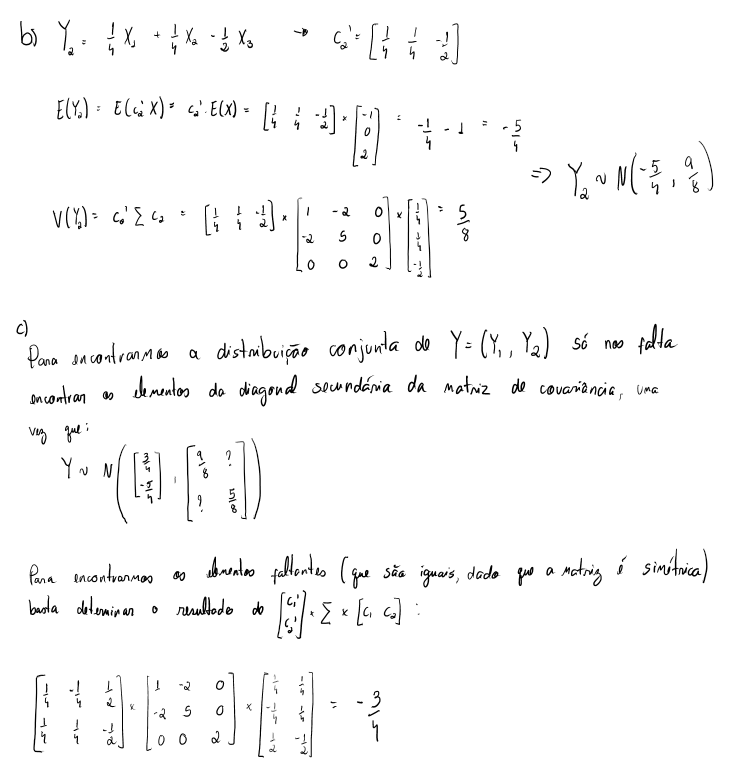 b) Y₂ = 1/4 X₁ + 1/4 X₂ - 1/2 X₃ → c₂' = [1/4 1/4 -1/2]
E(Y₂) = E(c₂'X) = c₂'.E(X) = [1/4 1/4 -1/2] × [-1 0 2] = -1/4 - 1 = -5/4
⇒ Y₂ ~ N(-5/4, 9/8)
V(Y₂) = c₂' Σ c₂ = [1/4 1/4 -1/2] × [1 -2 0; -2 5 0; 0 0 2] × [1/4 1/4 -1/2] = 5/8
c)
Para encontrarmos a distribuição conjunta de Y = (Y₁, Y₂) só nos falta
encontrar os elementos da diagonal secundária da matriz de covariância, uma
vez que:
Y ~ N([3/4; -5/4], [9/8 ?; ? 5/8])
Para encontrarmos os elementos faltantes (que são iguais, dado que a matriz é simétrica)
basta determinar o resultado do [c₁'; c₂'] × Σ × [c₁ c₂] :
[1/4 -1/4 1/2; 1/4 1/4 -1/2] × [1 -2 0; -2 5 0; 0 0 2] × [1/4 1/4; -1/4 1/4; 1/2 -1/2] = -3/4